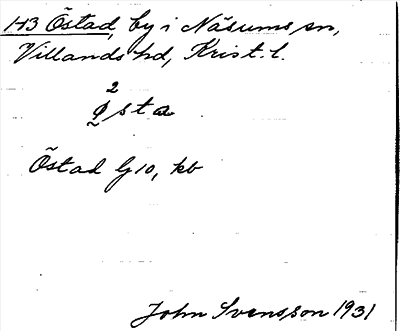 1-13 Östad, by i Näsums sn,
Villands hd, Krist. l.
2
ø̰sta
Östad G 10, kb
John Svensson 1931